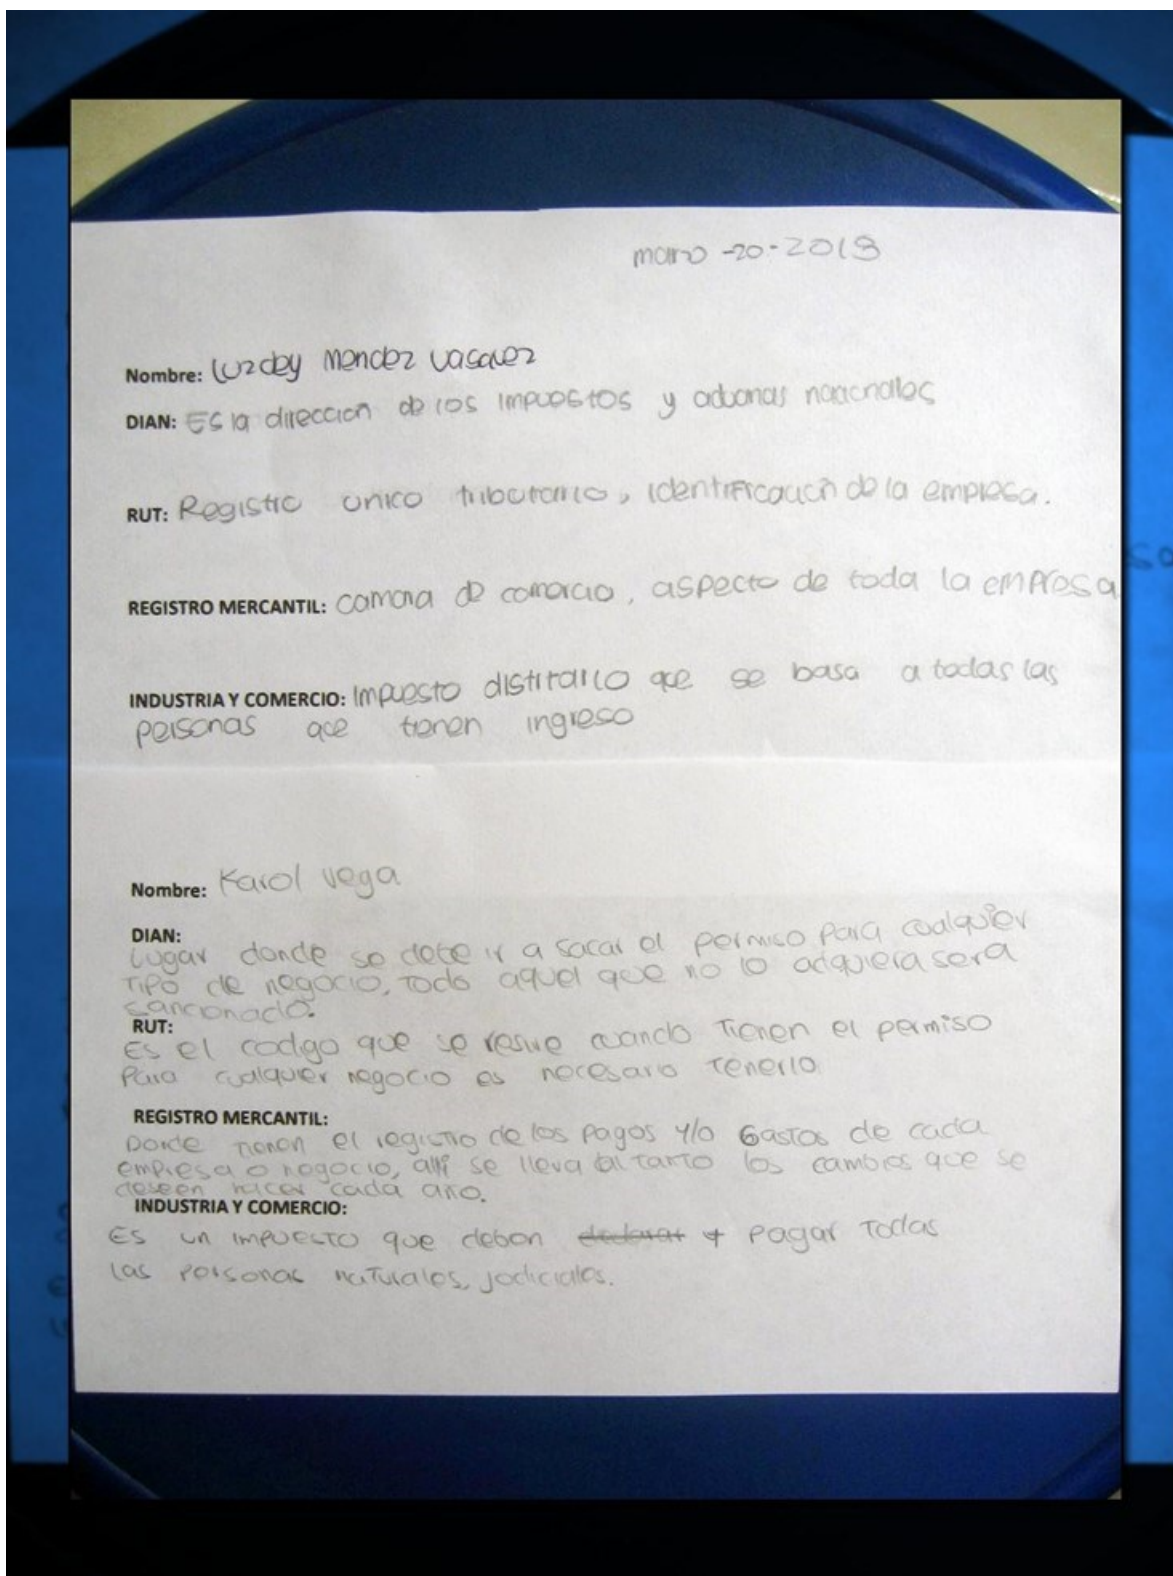 marzo -20-2013
Nombre: Luzdey Mendez Vasquez
DIAN: ES la direccion de los impuestos y aduanas nacionales
RUT: Registro unico tributario, identificación de la empresa.
REGISTRO MERCANTIL: camara de comercio, aspecto de toda la empresa
INDUSTRIA Y COMERCIO: Impuesto distritario que se basa a todas las
personas que tienen ingreso
Nombre: Karol vega
DIAN:
Lugar donde se debe ir a sacar el permiso para cualquier
tipo de negocio, todo aquel que no lo adquiera sera
sancionado.
RUT:
Es el codigo que se cuando tienen el permiso
Para cualquier negocio es necesario tenerlo
REGISTRO MERCANTIL:
Donde tienen el registro de los pagos y/o Gastos de cada
empresa o negocio, allí se lleva al tanto los cambios que se
deseen hacer cada año.
INDUSTRIA Y COMERCIO:
ES un impuesto que deben declarar y pagar Todas
las personas naturales, judiciales.